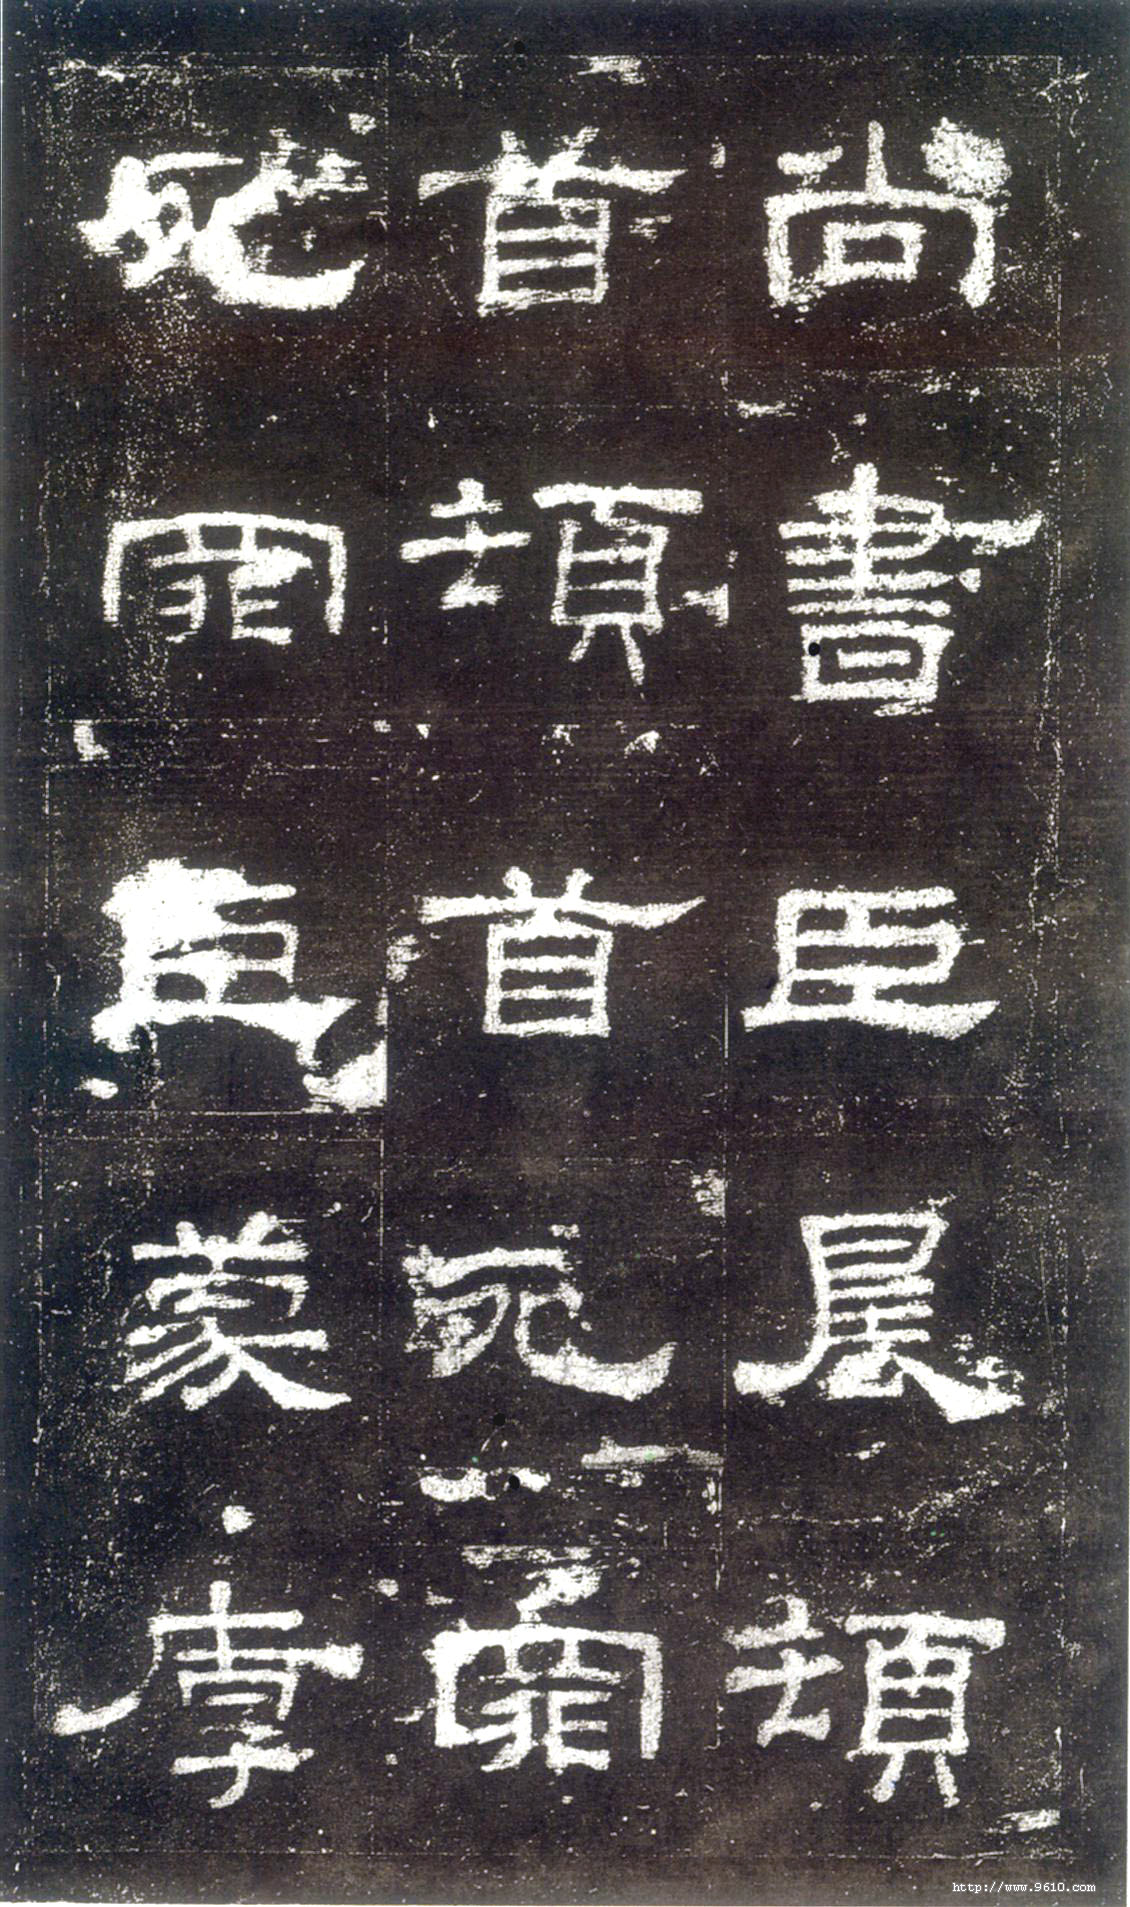 尚書臣晨頓
首頓首死罪
死罪臣蒙厚
http://www.9610.com